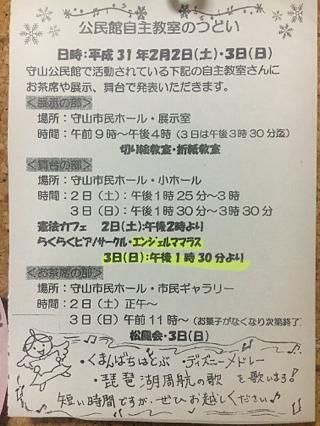 公民館自主教室のつどい
日時:平成31年2月2日(土)・3日(日)
守山公民館で活動されている下記の自主教室さんに
お茶席や展示、舞台で発表いただきます。
<展示の部>
場所:守山市民ホール・展示室
時間:午前9時~午後4時(3日は午後3時30分迄)
切り絵教室・折紙教室
<舞台の部>
場所:守山市民ホール・小ホール
時間:2日(土):午後1時25分~3時
3日(日):午後1時30分~3時30分
憲法カフェ 2日(土):午後2時より
らくらくピアノサークル・エンジェルママラス
3日(日):午後1時30分より
<お茶席の部>
場所:守山市民ホール・市民ギャラリー
時間:2日(土)正午~
3日(日)午前11時~(お菓子がなくなり次第終了)
松風会・3日(日)
・くまんばちはとぶ ・ディズニーメドレー
・琵琶湖周航の歌 を歌います!
短い時間ですが・ぜひお越しください♪